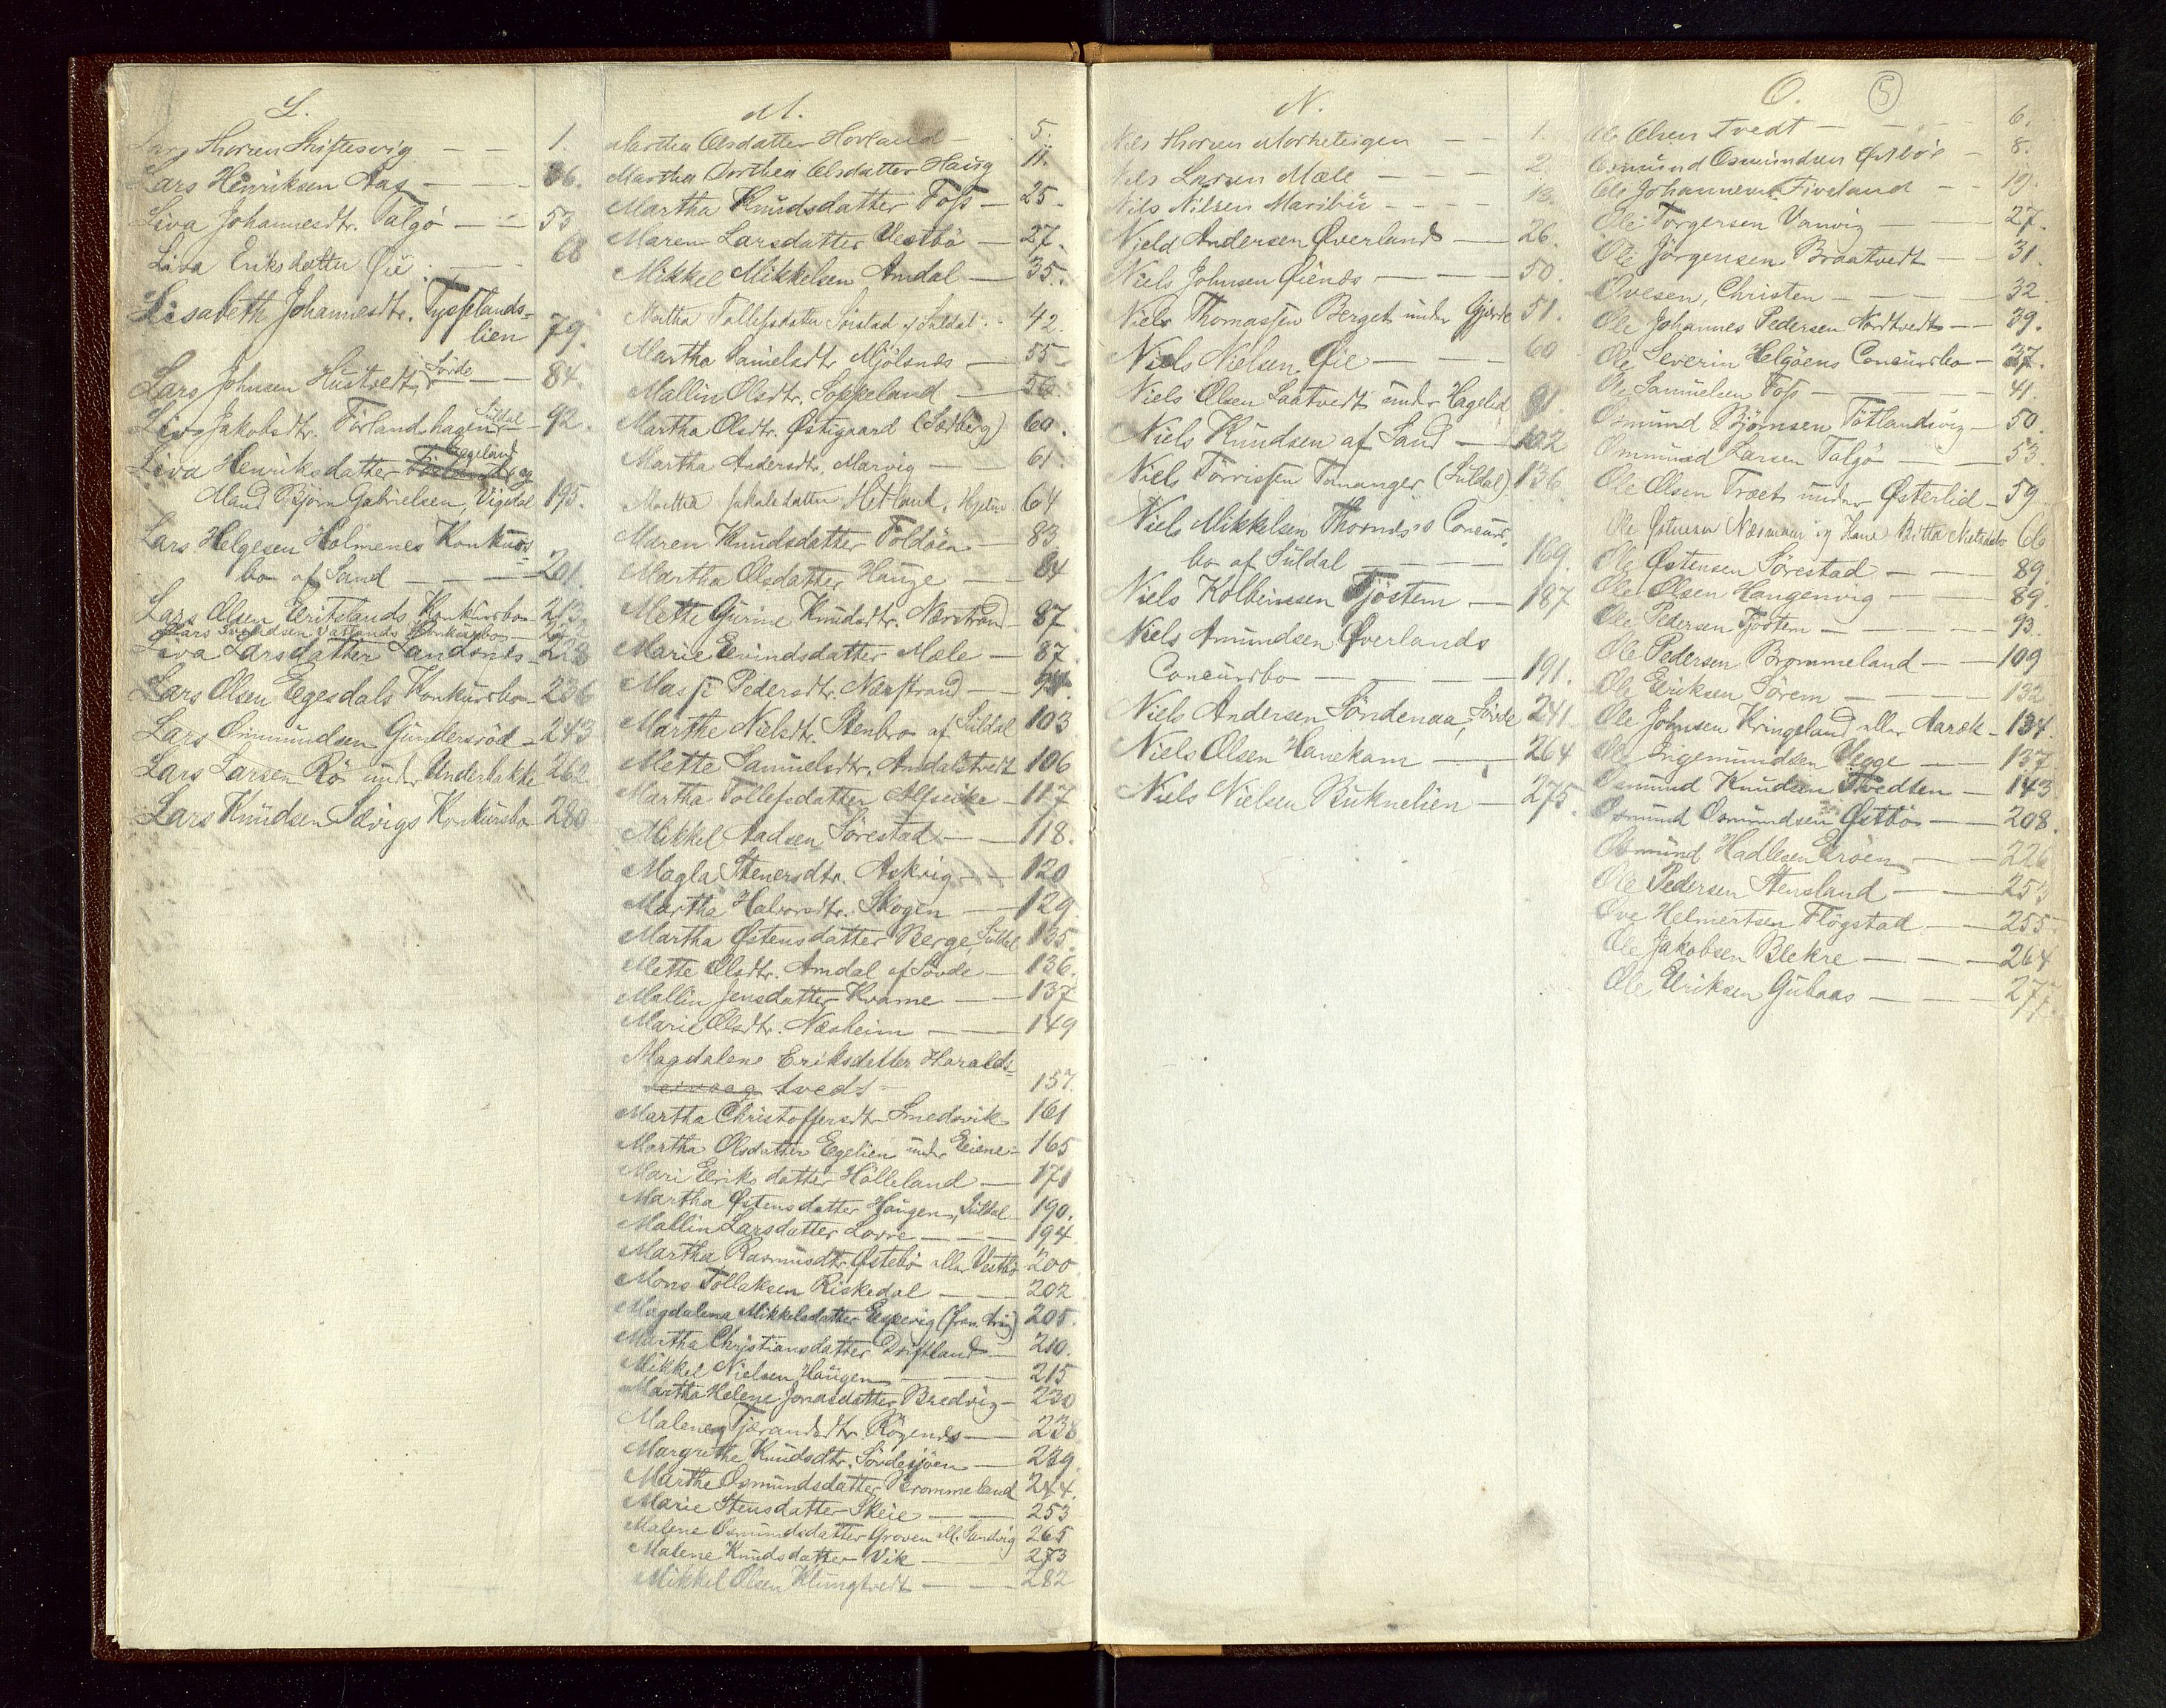 L.
Lars Thorsen Skiftesvig — — 1.
Lars Henriksen Aas — — — 36.
Liva Johannesdtr. Talgö — — 53
Liva Eriksdatter Øie — — 68
Lisabeth Johannesdtr. Tysselands-
lien 79.
Lars Johnsen Hustvedt, Sövde — — 84.
Liva Jakobsdtr. Förlandshagen Suldal — 92.
Liva Henriksdatter Hegeland og
Mand Björn Gabrielsen, Vigedal 195.
Lars Helgesen Holmenes Konkurs-
bo af Sand — — — 201.
Lars Olsen Eritslands Konkursbo — 213
Lars Svendsen Vatlands Konkursbo — 222
Liva Larsdatter Sandsnes — 228
Lars Olsen Egesdals Konkursbo — 236
Lars Ommundsen Gundersröd — 243
Lars Larsen Rö under Underbakke 262
Lars Knudsen Sævigs Konkursbo 280
M.
Martha Olsdatter Hovland — 5.
Martha Dorthea Olsdatter Haug 11.
Martha Knudsdatter Foss — 25.
Maren Larsdatter Vestbö — 27.
Mikkel Mikkelsen Amdal — 35.
Martha Tollefsdatter Sörstad af Suldal. - 42.
Martha Danielsdtr Mjölsnes — 55
Mallin Olsdtr. Soppeland — 56.
Martha Olsdtr. Østigaard (Sædberg) 60.
Martha Andersdtr. Marvig — 61.
Martha Jakobsdatter Hetland, Hjelm 64
Maren Knudsdatter Foldöen — 83
Martha Olsdatter Hauge — — 84
Mette Gurine Knudsdtr. Nærstrand — 87.
Marie Eivindsdatter Mæle — 87.
Massi Pedersdtr. Nærstrand — —
Marthe Nielsdtr. Stenbro af Suldal 103
Mette Samuelsdtr. Amdalstvedt 106
Martha Tollefsdatter Alfseike — 117
Mikkel Aadsen Sörestad — — 118.
Magla Stenersdtr. Askvig — — 120
Martha Halvorsdtr. Skogen — 129
Martha Østensdatter Berge Suldal 135.
Mette Olsdtr. Amdal af Sövde — 136.
Mallin Jensdatter Kvame — — 137
Marie Olsdtr. Næsheim — — 149
Magdalene Eriksdatter Haralds-
tvedt — 157.
Martha Christoffersdtr Smedsvik 161
Martha Olsdatter Egelien under Eiene - 165
Mari Eriksdatter Hölleland — 171
Martha Østensdatter Haugen, Suldal 190.
Mallin Larsdatter Lovre — — — 194
Martha Rasmusdtr Østebö eller Vestbö 200
Mons Tollaksen Riskedal — — 202
Magdalena Mikkelsdatter Espevig 205.
Martha Christiansdatter Dritland — 210.
Mikkel Nielsen Haugen — — 215
Martha Helene Jonasdatter Bredvig — 230
Malene Tjerandsdtr. Rögenes — 238
Margrethe Knudsdtr. Sövdesjöen — 239.
Marthe Osmundsdatter Brommeland 244.
Marie Stensdatter Skeie — — 253
Malene Osmundsdatter Groven ell. Sandvig 265
Malene Knudsdatter Vik — 273
Mikkel Olsen Klungtvedt — — 282
N.
Niels Thorsen Morketeigen — — 1.
Niels Larsen Mæle — — — 2.
Nils Nilsen Maribu — — — 13.
Nields Andersen Øverland — 26.
Niels Johnsen Øienes — — — 50.
Niels Thomassen Berget under Gjerde 51.
Niels Nielsen Øie — — — 60
Niels Olsen Laatvedt under Hagelid 91.
Niels Knudsen af Sand — 102
Niels Törrissen Tomanger (Suldal) 136.
Niels Mikkelsen Thornes's Concurs-
bo af Suldal — — — 169.
Niels Kolbeinsen Tjöstem — 187
Niels Amundsen Øverlands
Concursbo — — — 191.
Niels Andersen Söndenaa, Sövde 241.
Niels Olsen Hanekam — — 264
Niels Nielsen Buknelien — 275.
O. 5
Ole Olsen Tvedt — — — 6.
Osmund Osmundsen Østbö — 8.
Ole Johannesen Fiveland — — 19.
Ole Torgersen Vanvig — 27.
Ole Jörgensen Braatvedt — — 31.
Ovesen, Christen — — — 32.
Ole Johannes Pedersen Nordtvedt — — 39.
Ole Severin Helgöens Concursbo — 37.
Ole Samuelsen Foss — — — 41.
Osmund Björnsen Tötlandsvig — 50.
Ommund Larsen Talgö — — 53.
Ole Olsen Træet under Østerlid — 59.
Ole Østensen Næsmoen og Kone Britta Nielsdatter 66
Ole Østensen Sörestad — — 89.
Ole Olsen Haugenvig — — 89.
Ole Pedersen Tjöstem — — — 93.
Ole Pedersen Brommeland — — 109
Ole Eriksen Sörem — — — 132
Ole Johnsen Kringeland eller Aarek — 134.
Ole Ingemundsen Vegge — — 137.
Osmund Knudsen Tvedten — 143
Osmund Osmundsen Østbö — — 208.
Osmund Hadlesen Eröen — — 226
Ole Pedersen Stensland — — 253
Ove Helmertsen Flögstad — — 255
Ole Jakobsen Blekre — — — 264
Ole Eriksen Gubaas — — — 277